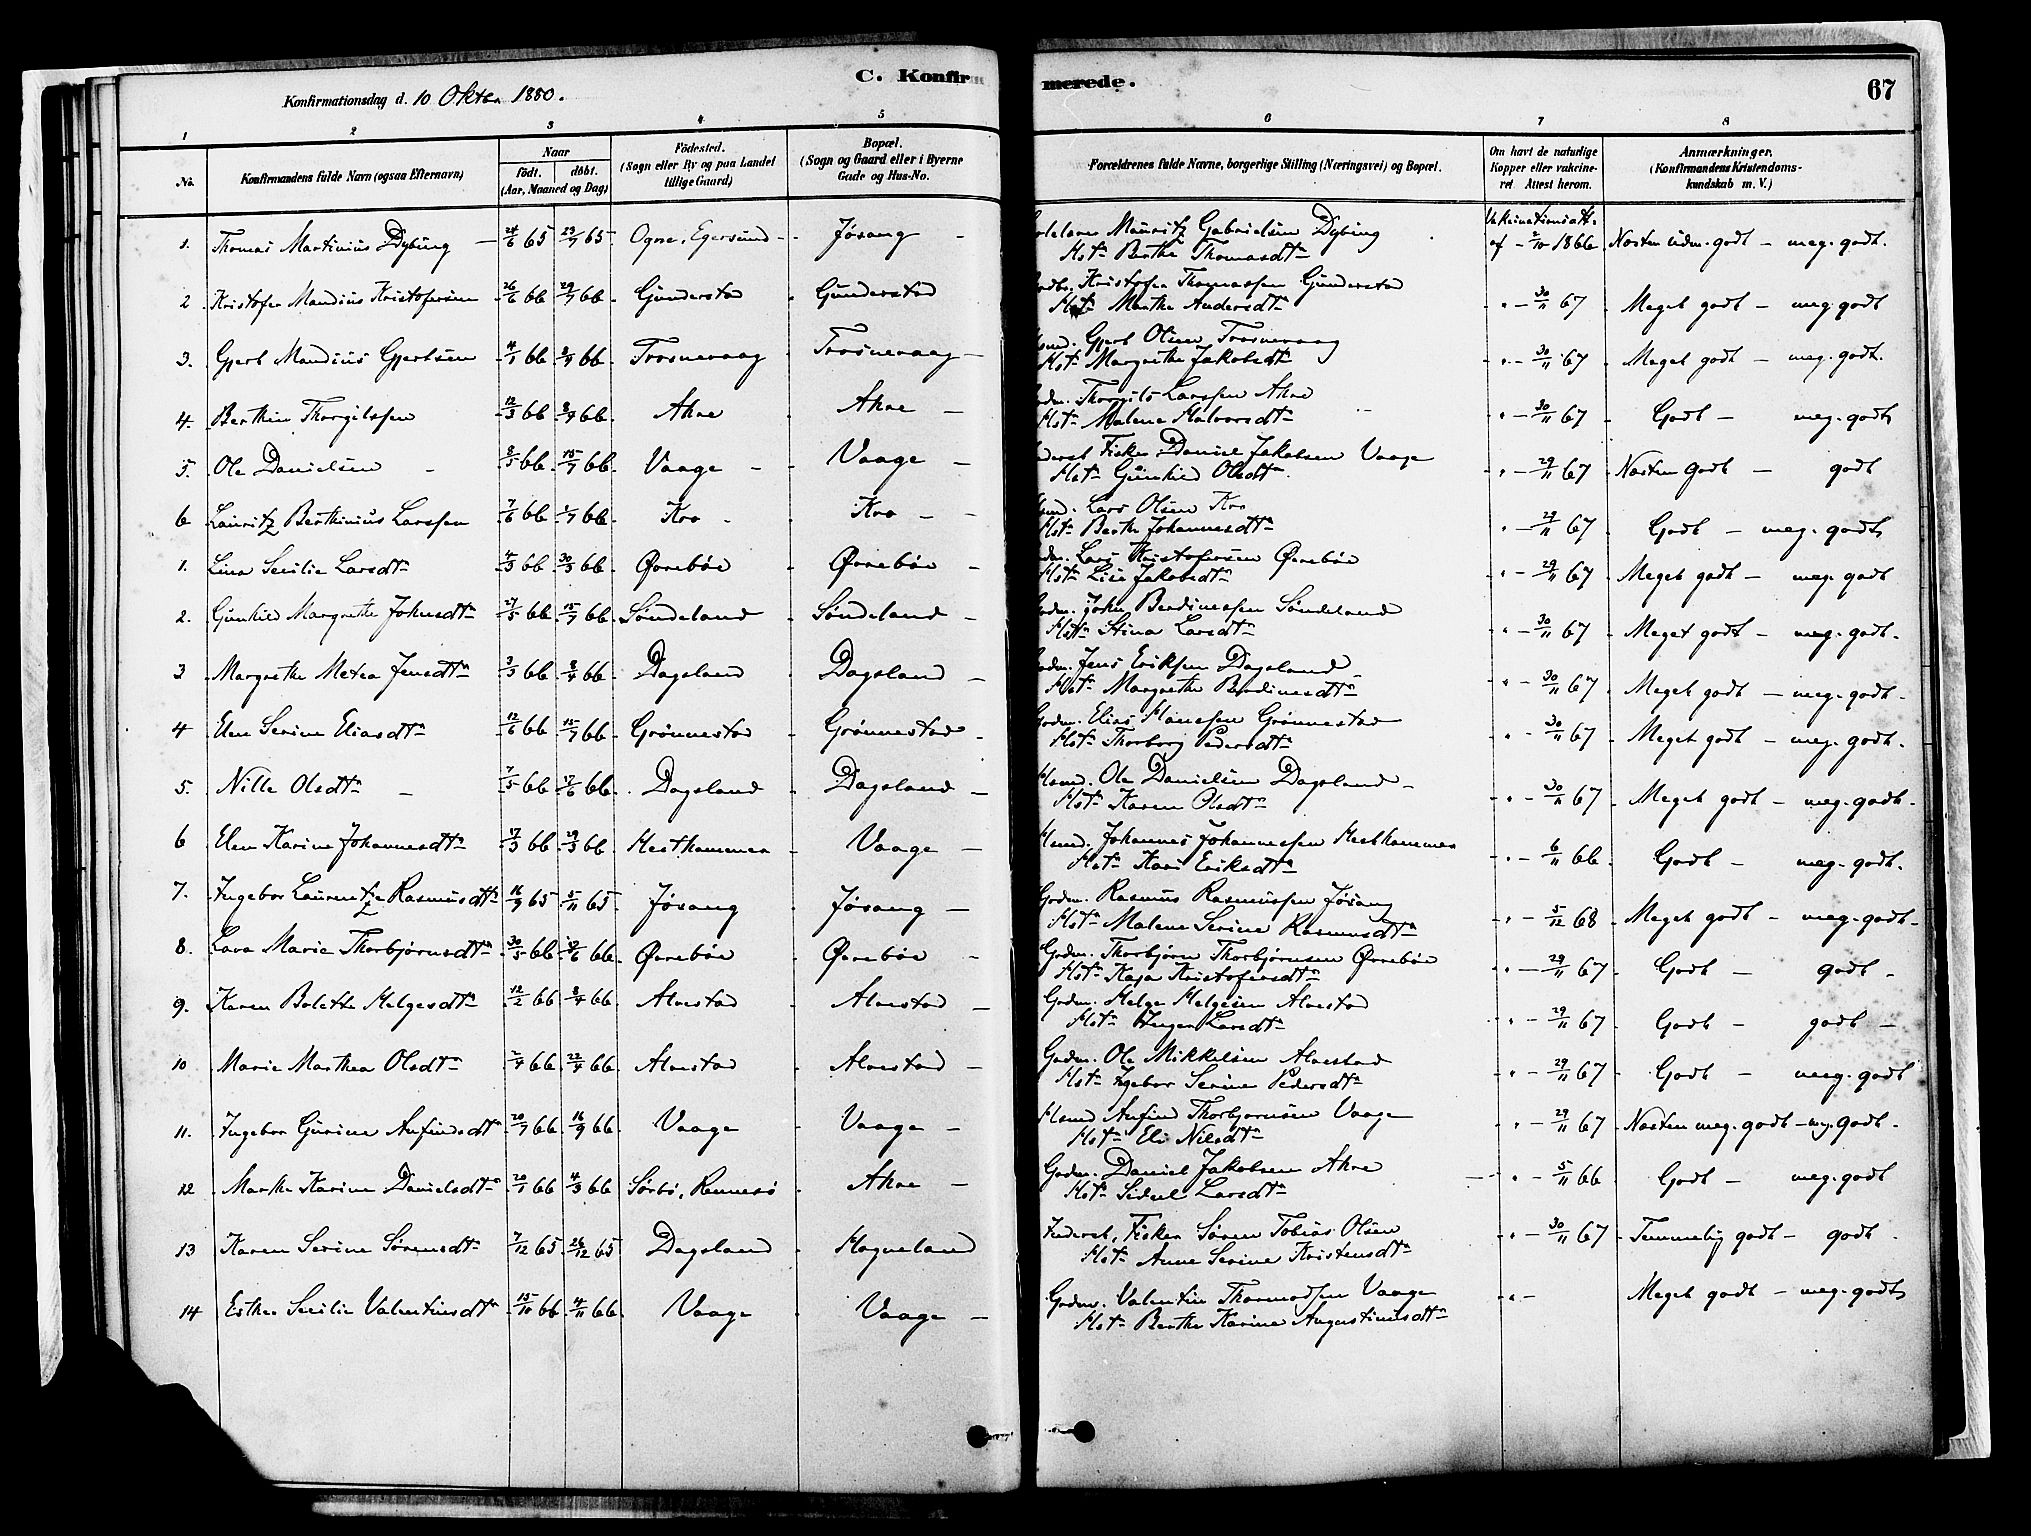 C. Konfirmerede.
67
Konfirmationsdag d. 10 Oktbr 1880.
1 2 3 4 5 6 7 8
No.
Konfirmandens fulde Navn (ogsaa Efternavn)
Naar
födt. döbt.
(Aar, Maaned og Dag)
Födested.
(Sogn eller By og paa Landet
tillige Gaard)
Bopæl.
(Sogn og Gaard eller i Byerne
Gade og Hus-No.
Forældrenes fulde Navne, borgerlige Stilling (Næringsvei) og Bopæl.
Om havt de naturlige
Kopper eller vakcine-
ret Attest herom.
Anmærkninger.
(Konfirmandens Kristendoms-
kundskab m. V.)
1. Thomas Martinius Dybing – 24/6 65 23/7 65 Ogne, Egersund - Jøsang – Mauritz Gabrielsen Dybing Vakcinationsatt.
Hst. Berthe Thomasdtr af – 2/10 1866 Næsten udm. godt – meg. godt.
2 Kristofer Mandius Kristofersen 26/6 66 29/7 66 Gunderstad Gunderstad Kristofer Thomassen Gunderstad
Hst. Marthe Andersdtr " – 30/11 67 Meget godt – meg godt
3. Gjert Mandius Gjertsen 4/1 66 2/4 66 Trosnevaag Trosnevaag – Gjert Olsen Trosnevaag
Hst. Margrethe Jakobsdtr " – 30/11 67 Meget godt – meg. godt.
4. Berthin Thorgilssen 12/3 66 8/4 66 Ahre Ahre – Thorgils Larssen Ahre
Hst. Malene Halvorsdtr " – 30/11 67 Godt – meg. godt
5. Ole Danielsen 8/5 66 15/7 66 Vaage – Vaage – Fisker Daniel Jakobsen Vaage
Hst. Gunhild Olsdtr " – 29/11 67 Næsten godt – godt
6 Lauritz Berthinius Larssen 7/6 66 1/7 66 Kro – Kro – Lars Olsen Kro
Hst. Berthe Johannesdtr " – 29/11 67 Godt – meg. godt
1. Lina Secilie Larsdtr 4/3 66 30/3 66 Ørrebøe Ørrebøe – Lars Kristofersen Ørrebøe
Hst. Lise Jakobsdtr " – 29/11 67 Meget godt – meg. godt
2. Gunhild Margrethe Johnsdtr 27/5 66 15/7 66 Søndeland Søndeland – John Berdinessen Søndeland
Hst. Stina Larsdtr " – 30/11 67 Meget godt – meg. godt.
3 Margrethe Metea Jensdtr 3/3 66 8/4 66 Dagsland Dagsland – Jens Eriksen Dagsland
Hst. Margrethe Berdinesdtr " – 30/11 67 Meget godt – meg. godt.
4 Elen Serine Eliasdtr 12/6 66 15/7 66 Grønnestad Grønnestad – Grdm. Elias Hanssen Grønnestad
Hst. Thorborg Pedersdtr " – 30/11 67 Meget godt – meg. godt.
5. Nille Olsdtr – 7/5 66 17/6 66 Dagsland Dagsland – Hsmd. Ole Danielsen Dagsland –
Hst. Karen Olsdtr " – 30/11 67 Meget godt – meg. godt.
6 Elen Karine Johannesdtr 17/3 66 29/3 66 Hesthammer Vaage – Hsmd. Johannes Johannessen Hesthammer
Hst. Kari Eriksdtr " – 6/11 66 Godt – meg. godt.
7. Ingebor Laurentze Rasmusdtr 16/9 65 5/11 65 Jøsang Jøsang – Grdm. Rasmus Rasmussen Jøsang
Hst. Malene Serine Rasmusdtr " – 5/12 68 Meget godt – meg. godt.
8. Lava Marie Thorbjørnsdtr 30/5 66 17/6 66 Ørrebøe Ørrebøe Grdm. Thorbjørn Thorbjørnsen Ørrebøe
Hst. Kaja Kristofersdtr " – 29/11 67 Godt – godt –
9. Karen Bolette Helgesdtr 12/2 66 8/4 66 Alvestad Alvestad – Grdm. Helge Helgesen Alvestad
Hst. Inger Larsdtr " – 29/11 67 Godt – godt –
10 Marie Marthea Olsdtr 2/4 66 22/4 66 Alvestad Alvestad – Grdm. Ole Mikkelsen Alvestad
Hst. Ingebor Serine Pedersdtr " – 29/11 67 Godt – meg. godt
11. Ingebor Gurine Anfindsdtr 20/7 66 16/9 66 Vaage Vaage – Hsmd Anfind Thorbjørnsen Vaage
Hst. Eli Nilsdtr " – 29/11 67 Næsten meg. godt – mg. godt.
12 Marthe Karine Danielsdtr 20/1 66 4/3 66 Sørbø, Rennesø Ahre – Grdm. Daniel Jakobsen Ahre
Hst. Sidsel Larsdtr " – 5/11 66 Godt – meg. godt
13 Karen Serine Sørensdtr 7/12 65 26/12 65 Dagsland Hagneland Inderst, Fisker Søren Tobias Olsen
Hst. Anne Serine Kristensdtr " – 30/11 67 Temmelig godt – godt.
14 Esther Secilie Valentinsdtr 15/10 66 4/11 66 Vaage Vaage – Grdm. Valentin Thormodsen Vaage
Hst. Berthe Karine Augustinusdtr " – Meget godt – meg. godt